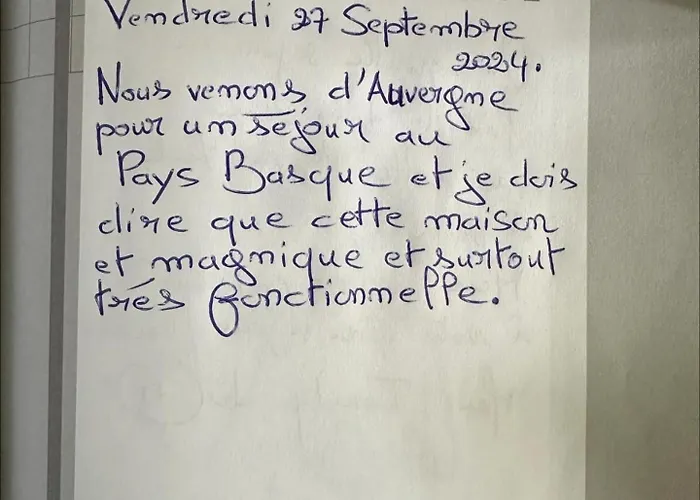 Vendredi 27 Septembre
2024.
Nous venons d'Auvergne
pour un séjour au
Pays Basque et je dois
dire que cette maison
et magnique et surtout
trés fonctionnelle.